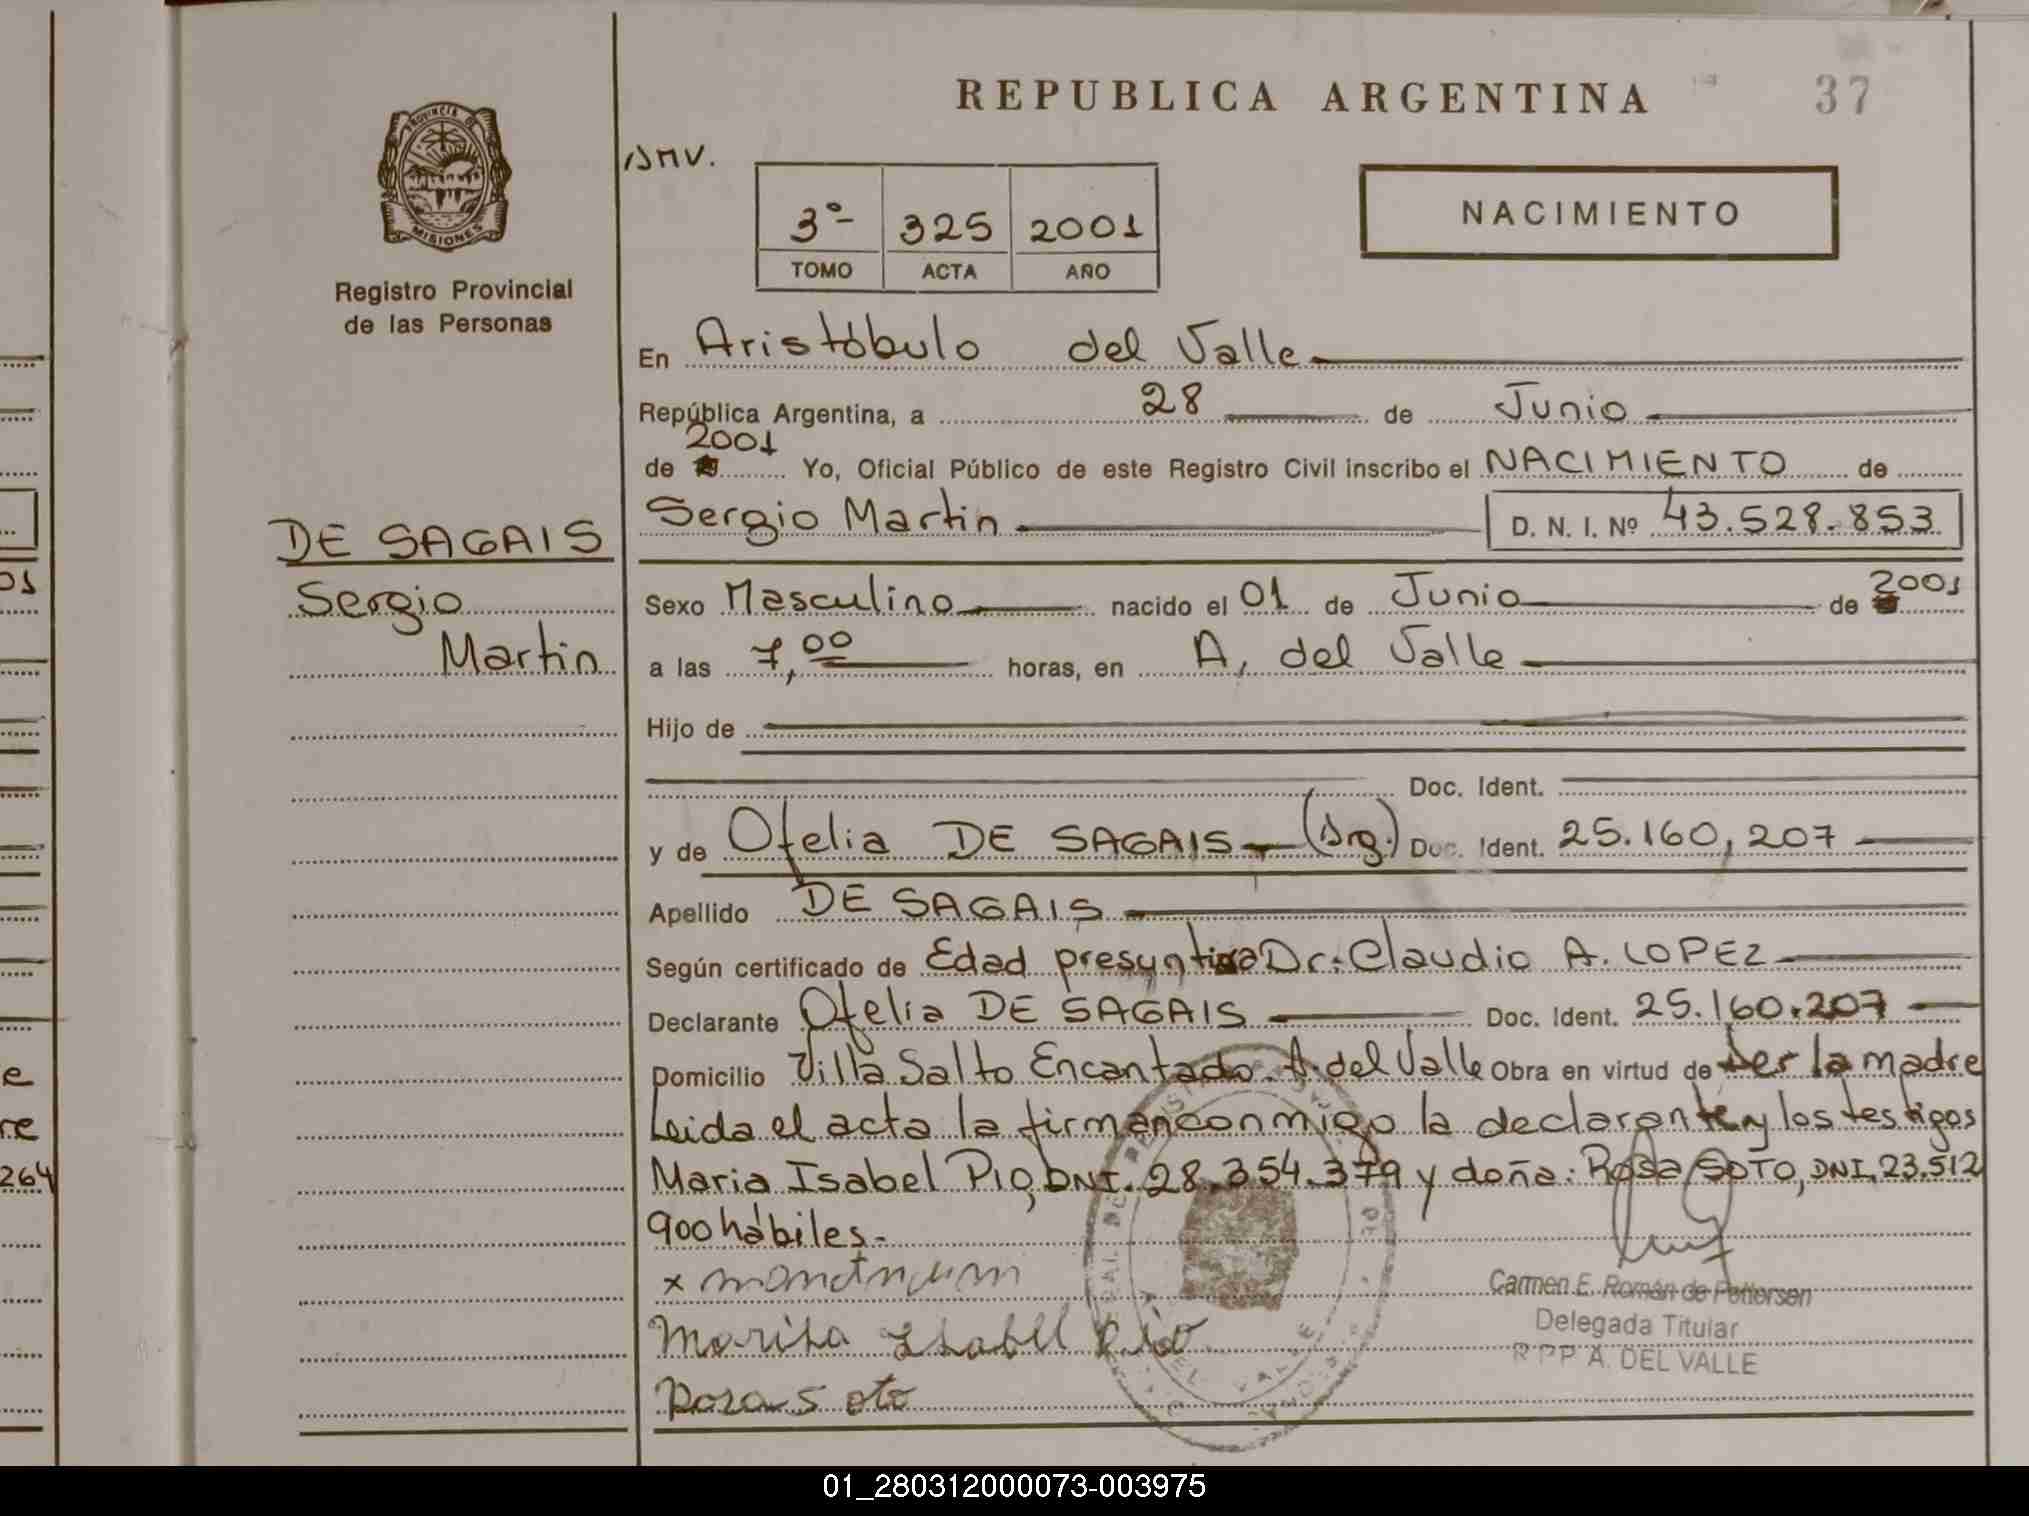 REPUBLICA ARGENTINA 37
PROVINCIA DE
MISIONES
Registro Provincial
de las Personas
3º 325 2001
TOMO ACTA AÑO
NACIMIENTO
En Aristóbulo del Valle
República Argentina, a 28 de Junio
2001
de Yo, Oficial Público de este Registro Civil inscribo el NACIMIENTO de
Sergio Martin D. N. I. Nº 43.528.853
DE SAGAIS
Sergio
Martin
Sexo Masculino nacido el 01 de Junio de 2001
a las 7,00 horas, en A, del Valle
Hijo de
Doc. Ident.
y de Ofelia DE SAGAIS (Arg.) Doc. Ident. 25.160,207
Apellido DE SAGAIS
Según certificado de Edad presuntiva Dr. Claudio A. LOPEZ
Declarante Ofelia DE SAGAIS Doc. Ident. 25.160.207
Domicilio Villa Salto Encantado. A. del Valle Obra en virtud de ser la madre
Leida el acta la firman conmigo la declarante y los testigos
Maria Isabel PIO, DNI. 28.354.379 y doña: Rosa SOTO, DNI, 23.512
900 hábiles.-
x
Marisa Isabel Pio
Rosa Soto
Carmen E. Román de Pettersen
Delegada Titular
R.P.P. A. DEL VALLE
01
e
re
264
01_280312000073-003975